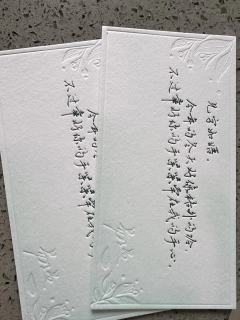 见字如晤.
今年的冬天好像格外的冷.
不过幸好你的手紧紧牵在我的手心.
今年的
不过幸好你的手紧紧牵在我的